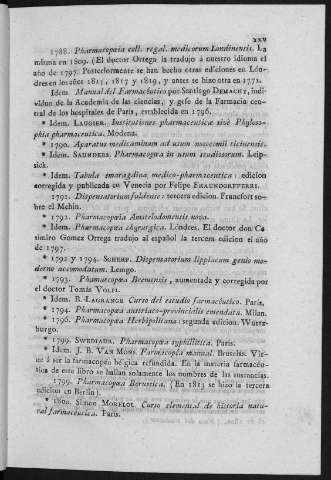 xxv
1788. Pharmacopœia coll. regal. medicorum Londinensis. La
misma en 1809. (El doctor Ortega la tradujo á nuestro idioma el
año de 1797. Posteriormente se han hecho otras ediciones en Lón-
dres en los años 1815, 1817 y 1819, y antes se hizo otra en 1771.
Idem. Manual del Farmacéutico por Santiago DEMACHY, indi-
viduo de la Academia de las ciencias, y gefe de la Farmacia cen-
tral de los hospitales de Paris, establecida en 1796.
* Idem. LAUGIER. Institutiones pharmaceuticæ sive Philoso-
phia pharmaceutica. Modena.
* 1790. Apparatus medicaminum ad usum nosocomii ticinensis.
* Idem. SAUNDERS. Pharmacopœa in usum studiosorum. Leip-
sick.
* Idem. Tabula smaragdina medico-pharmaceutica: edicion
corregida y publicada en Venecia por Felipe FRAUNDORFFERI.
1791. Dispensatorium fuldense: tercera edicion. Francfort so-
bre el Mehin.
* 1792. Pharmacopœia Amstelodamensis nova.
* Idem. Pharmacopœa chyrurgica. Lóndres. El doctor don Ca-
simiro Gomez Ortega tradujo al español la tercera edicion el año
de 1797.
* 1792 y 1794. SCHERF. Dispensatorium lippiacum genio mo-
derno accomodatum. Lemgo.
* 1793. Phamacopœa Bremensis, aumentada y corregida por
el doctor Tomás VOLPI.
* Idem. B-LAGRANGE Curso del estudio farmacéutico. Paris.
* 1794. Pharmacopœa austriaco-provincialis emendata. Milan.
* 1796. Pharmacopœa Herbipolitana: segunda edicion. Wurtz-
burgo.
* 1799. SWEDIAUR. Pharmacopœa syphillitica. Paris.
* Idem. J. B. VAN MONS. Farmacopéa manual. Bruselas. Vie-
ne á ser la farmacopéa bélgica refundida. En la materia farmacéu-
tica de este libro se hallan solamente los nombres de las sustancias.
1799. Pharmacopœa Borusica. (En 1813 se hizo la tercera
edicion en Berlin).
* 1800. Simon MORELOT. Curso elemental de historia natu-
ral farmacéutica. Paris.